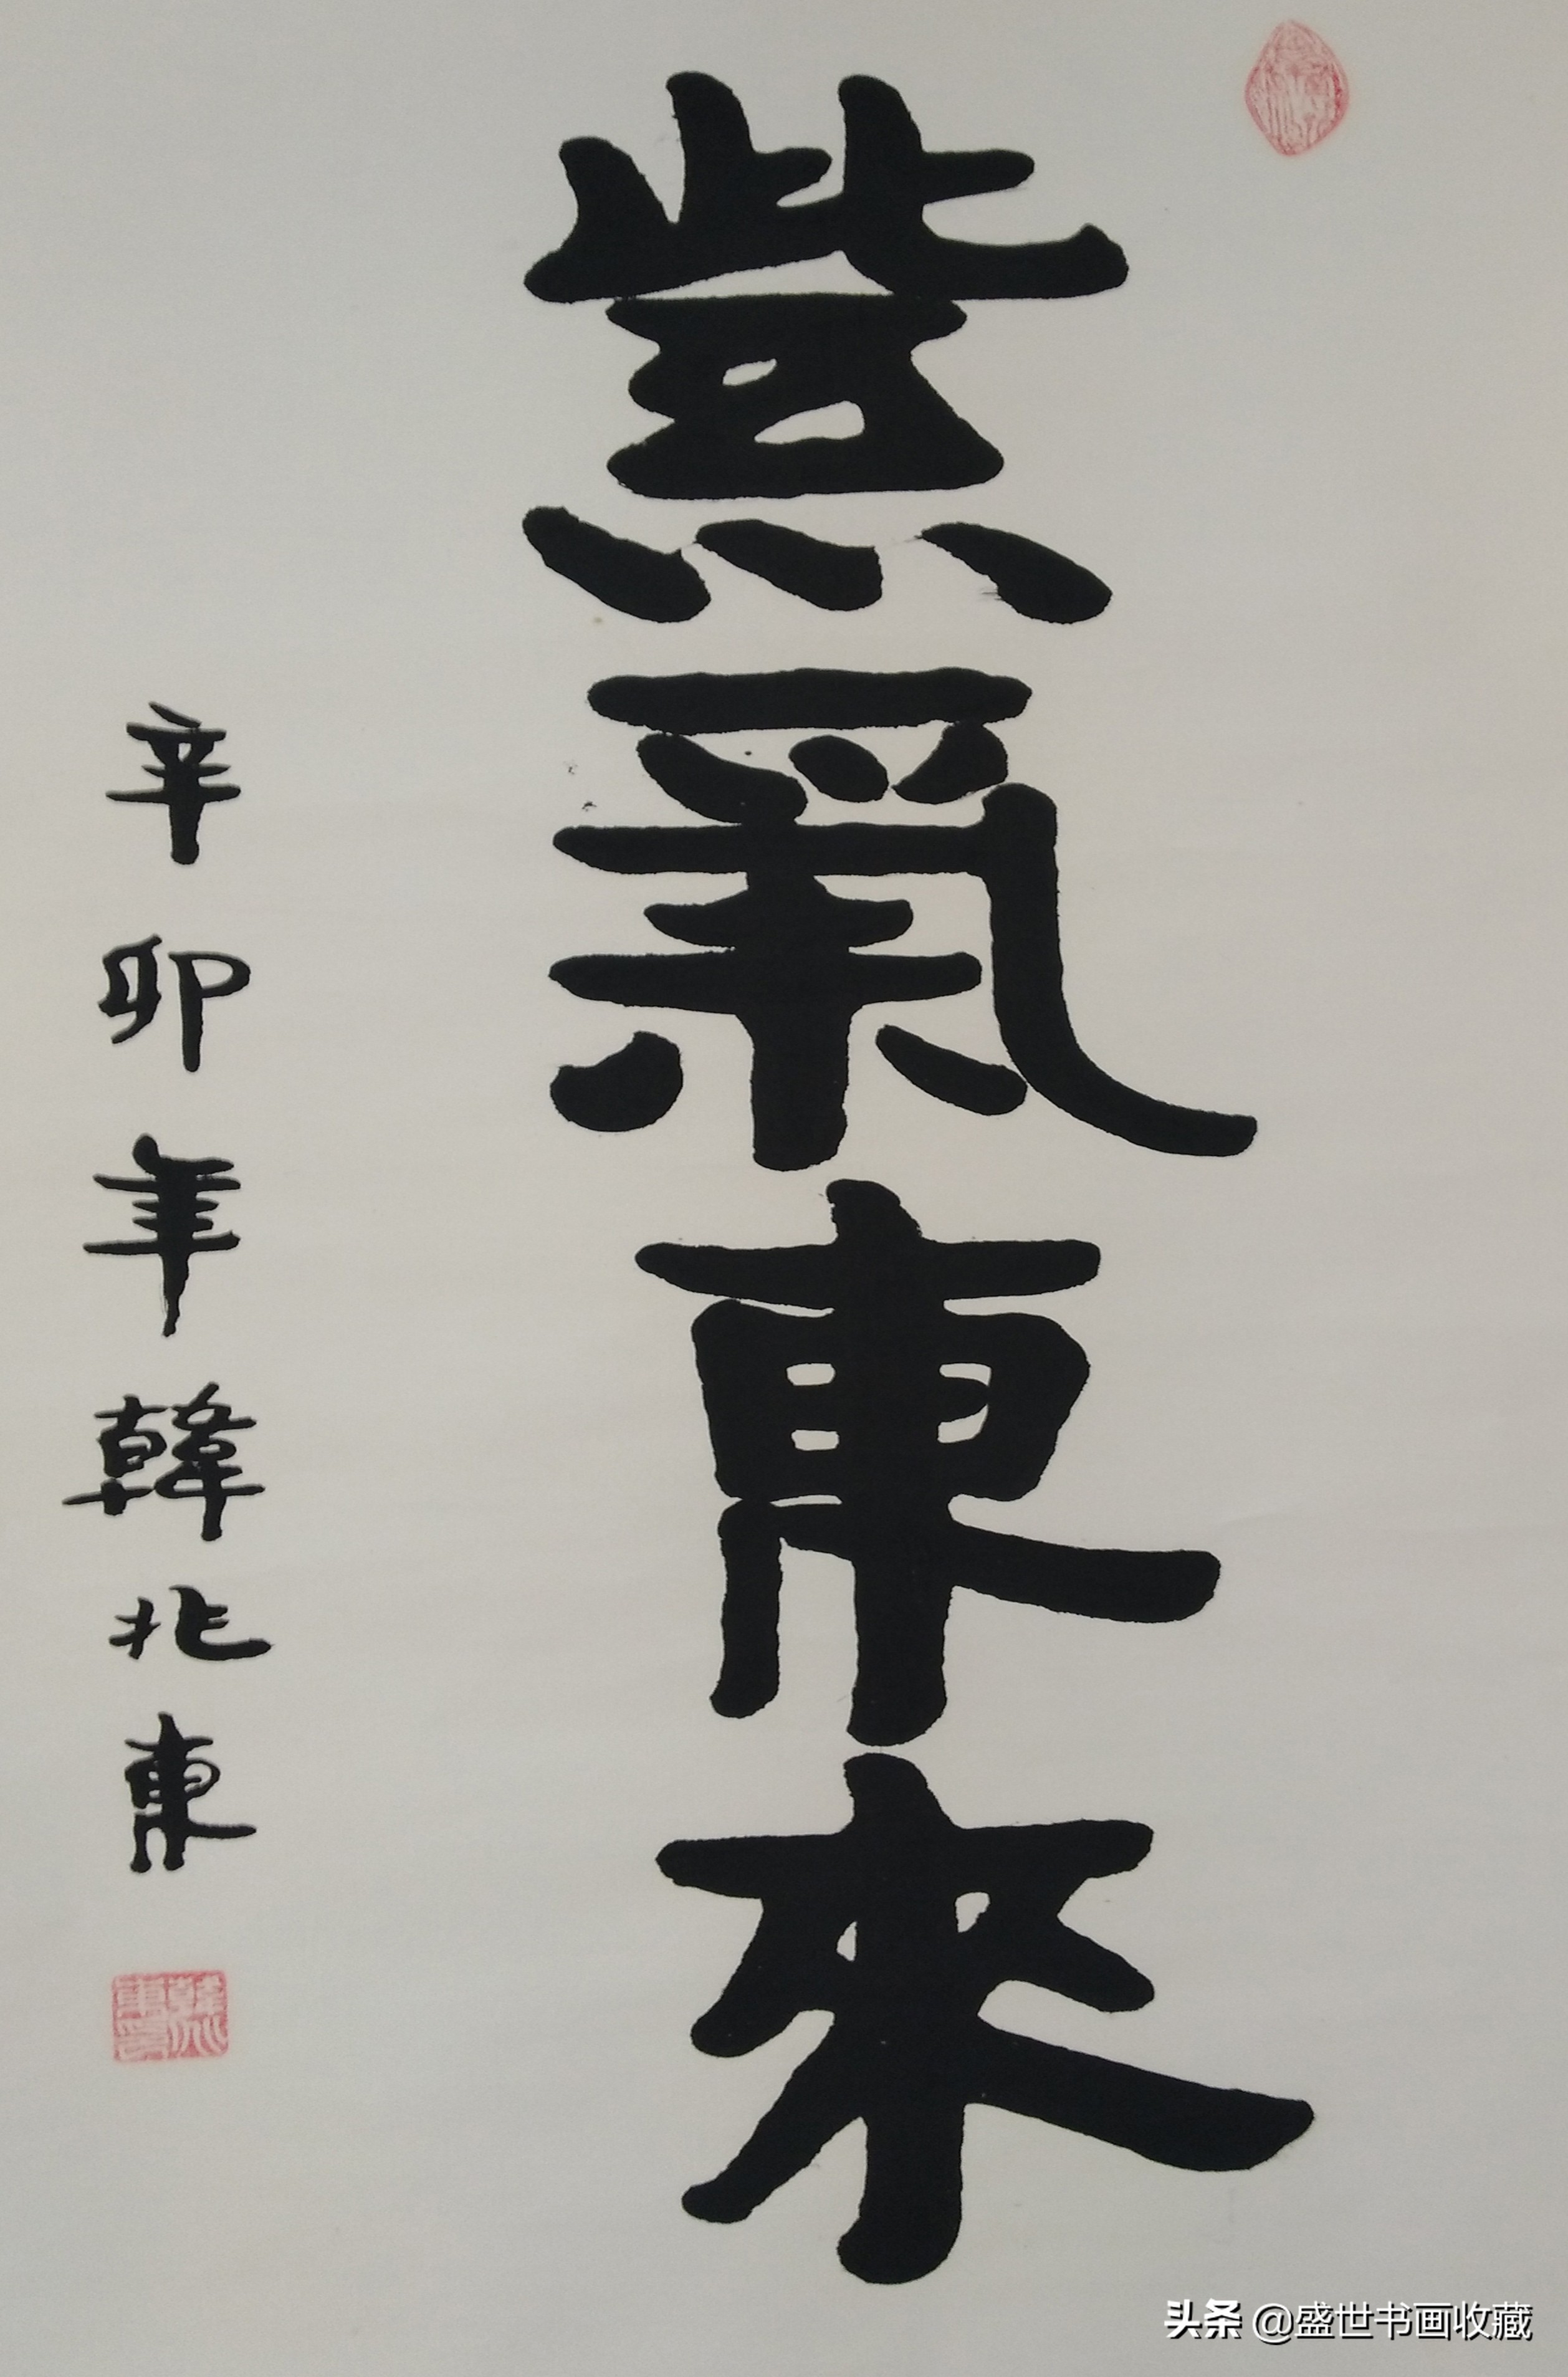 紫氣東來
辛卯年韓北東
头条 @盛世书画收藏